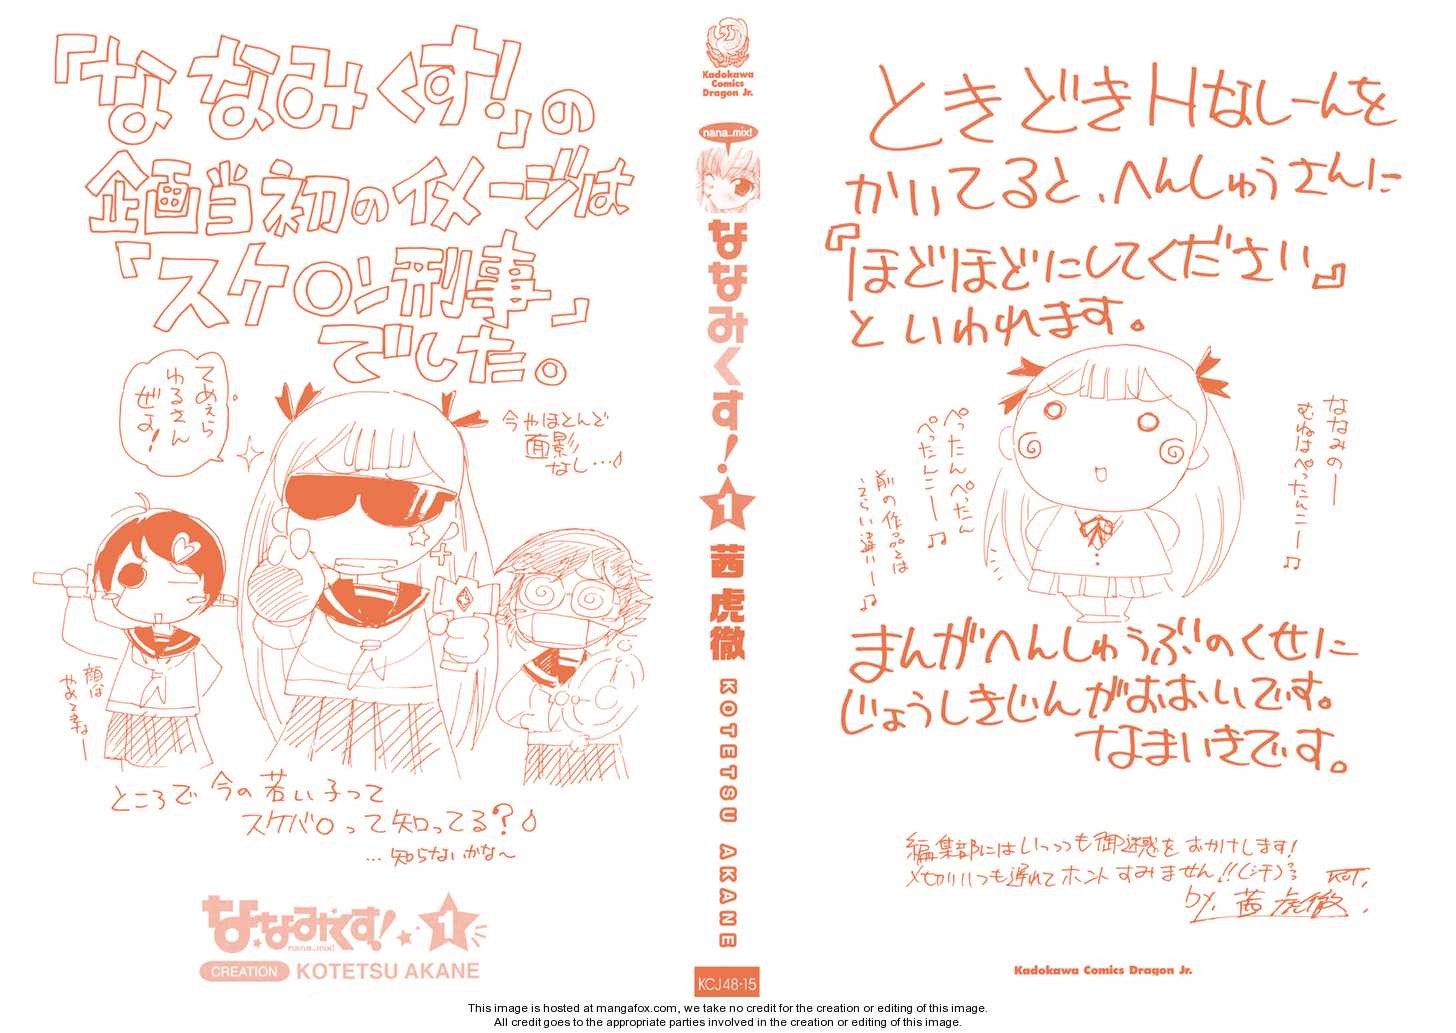 「ななみくす!」の
企画当初のイメージは
「スケ○ン刑事」
でした。
てめぇら
ゆるさん
ぜよ!
今やほとんど
面影
なし…
顔は
やめて
ところで今の若い子って
スケバ○って知ってる?
…知らないかな〜
ななみくす! 1
nana_mix!
CREATION KOTETSU AKANE
Kadokawa
Comics
Dragon Jr.
nana_mix!
ななみくす!
1
茜虎徹
KOTETSU AKANE
KCJ48-15
ときどきHなしーんを
かいてると、へんしゅうさんに
『ほどほどにしてください』
といわれます。
ななみのー
むねはぺったんこー♫
ぺったんぺったん
ぺったんこー♫
前の作品とは
えらい違いー♫
まんがへんしゅうぶのくせに
じょうしきじんがおおいです。
なまいきです。
編集部にはいっつも御迷惑をおかけします!
〆切りいつも遅れてホントすみません!!(汗)
KOT.
by. 茜虎徹.
Kadokawa Comics Dragon Jr.
This image is hosted at mangafox.com, we take no credit for the creation or editing of this image.
All credit goes to the appropriate parties involved in the creation or editing of this image.